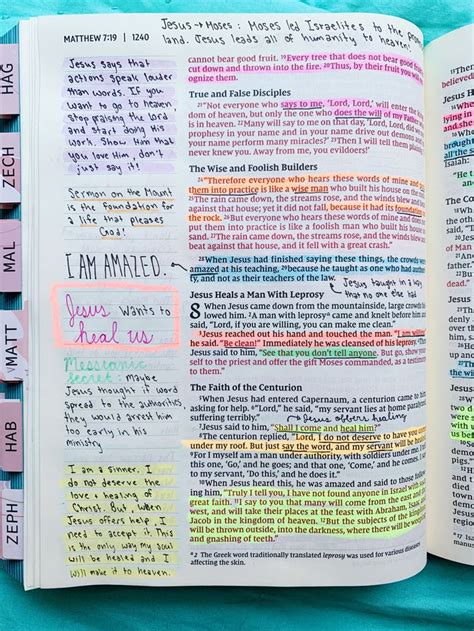 MATTHEW 7:19 | 1240
Jesus → Moses: Moses led Israelites to the
land. Jesus leads all of humanity to heaven!
HAG
ZECH
MAL
MATT
HAB
ZEPH
Jesus says that
actions speak louder
than words. If you
want to go to heaven,
stop praising the Lord
and start doing His
work. Show Him that
you love Him, don't
just say it!
Sermon on the Mount
is the foundation for
a life that pleases
God!
I AM AMAZED.
Jesus wants to
heal us
Messianic
secret: Maybe
Jesus thought if word
spread to the authorities
they would arrest him
too early in his
ministry
I am a sinner. I
do not deserve the
love & healing of
Christ. But, when
Jesus offers help, I
need to accept it. This
is the only way my soul
will be healed and I
will make it to heaven.
cannot bear good fruit. 19Every tree that does not bear good
cut down and thrown into the fire. 20Thus, by their fruit you will
ognize them.
True and False Disciples
21"Not everyone who says to me, 'Lord, Lord,' will enter the
dom of heaven, but only the one who does the will of my Father
is in heaven. 22Many will say to me on that day, 'Lord, Lord, did we
prophesy in your name and in your name drive out demons
your name perform many miracles?' 23Then I will tell them plainly
never knew you. Away from me, you evildoers!'
The Wise and Foolish Builders
24"Therefore everyone who hears these words of mine and
them into practice is like a wise man who built his house on the
25The rain came down, the streams rose, and the winds blew and
against that house; yet it did not fall, because it had its foundation
the rock. 26But everyone who hears these words of mine and does
them into practice is like a foolish man who built his house
sand. 27The rain came down, the streams rose, and the winds blew
beat against that house, and it fell with a great crash."
28When Jesus had finished saying these things, the crowds
amazed at his teaching, 29because he taught as one who had
ty, and not as their teachers of the law.
Jesus taught in a way
that no one else had
Jesus Heals a Man With Leprosy
8 When Jesus came down from the mountainside, large crowds
lowed him. 2A man with leprosy a came and knelt before him
said, "Lord, if you are willing, you can make me clean."
3Jesus reached out his hand and touched the man. "I am willing,"
he said. "Be clean!" Immediately he was cleansed of his leprosy.
Jesus said to him, "See that you don't tell anyone. But go, show
self to the priest and offer the gift Moses commanded, as a testimony
to them."
The Faith of the Centurion
5When Jesus had entered Capernaum, a centurion came to
asking for help. 6"Lord," he said, "my servant lies at home paralyzed,
suffering terribly."
Jesus offers healing
7Jesus said to him, "Shall I come and heal him?"
8The centurion replied, "Lord, I do not deserve to have you come
under my roof. But just say the word, and my servant will be healed.
9For I myself am a man under authority, with soldiers under me.
this one, 'Go,' and he goes; and that one, 'Come,' and he comes. I
to my servant, 'Do this,' and he does it."
10When Jesus heard this, he was amazed and said to those following
him, "Truly I tell you, I have not found anyone in Israel with such
great faith. 11I say to you that many will come from the east and
west, and will take their places at the feast with Abraham, Isaac
Jacob in the kingdom of heaven. 12But the subjects of the kingdom
will be thrown outside, into the darkness, where there will be weeping
and gnashing of teeth."
a 2 The Greek word traditionally translated leprosy was used for various diseases
affecting the skin.